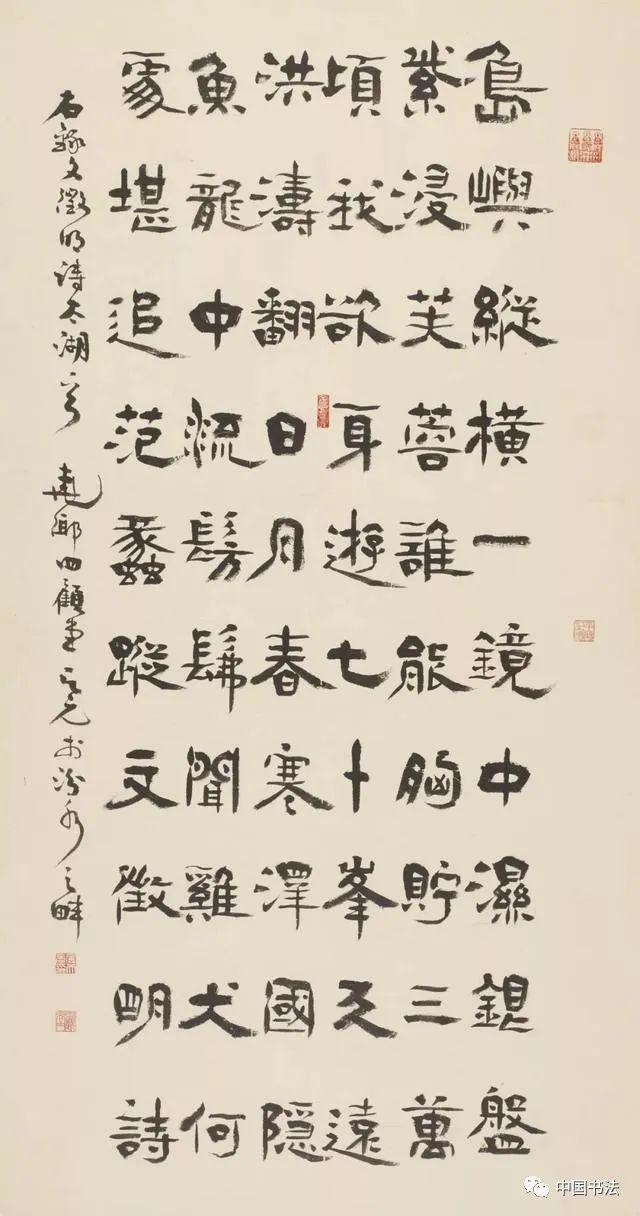 島嶼縱橫一鏡中濕銀盤
紫浸芙蓉誰能胸貯三萬
頃我欲身遊七十峯天遠
洪濤翻日月春寒澤國隱
魚龍中流髣髴聞雞犬何
處堪追范蠡蹤文徵明詩
右錄文徵明詩太湖一首 建鄉四顧堂主元於汾水之畔
中国书法